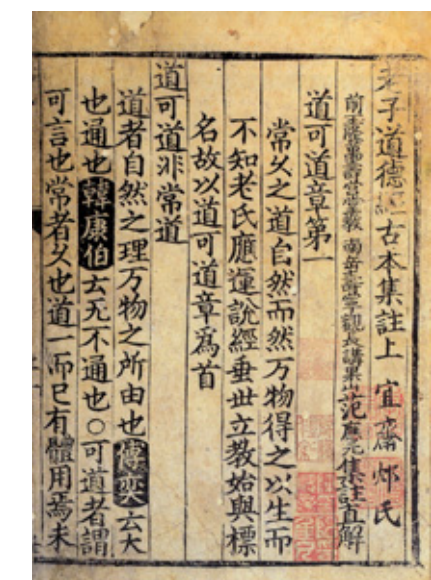 老子道德經古本集註上　宜齋邠氏
前玉隆萬壽宮掌教南岳壽寧觀長講果山范應元集註直解
道可道章第一
常久之道自然而然万物得之以生而
不知老氏應運說經垂世立教始與標
名故以道可道章爲首
道可道非常道
道者自然之理万物之所由也傅奕云大
也通也韓康伯云无不通也○可道者謂
可言也常者久也道一而已有體用焉未